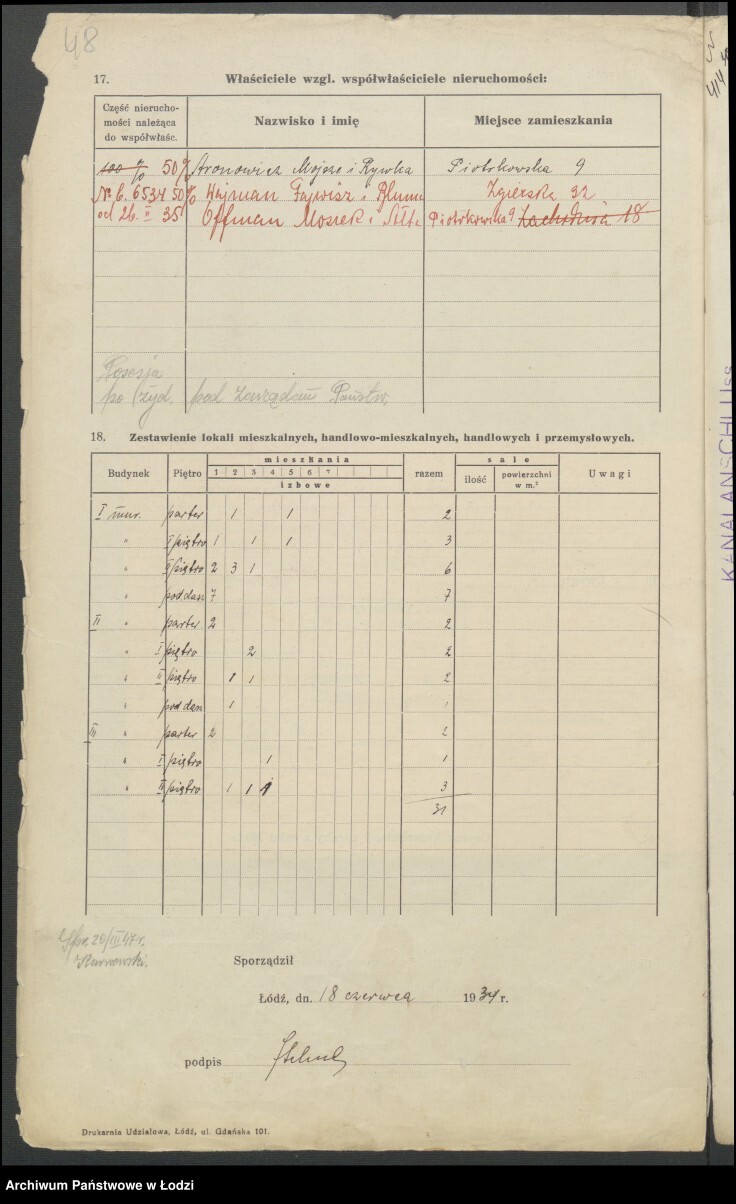 48
17. Właściciele wzgl. współwłaściciele nieruchomości:
Część nierucho-
mości należąca
do współwłaśc.
Nazwisko i imię
Miejsce zamieszkania
100 % 50% Aronowicz Mojsze i Rywka Piotrkowska 9
Nr b. 6534 50% Wajman Fajwisz i Bluma Zgierska 92
od 26. II 35 Offman Moszek i Piotrkowska 9 Zachodnia 18
Posesja
po żyd. pod zarządem Państw.
18. Zestawienie lokali mieszkalnych, handlowo-mieszkalnych, handlowych i przemysłowych.
Budynek Piętro mieszkania razem sale Uwagi
1 2 3 4 5 6 7
izbowe
ilość powierzchni
w m.²
I mur. parter 1 1 2
" I piętro 1 1 1 3
" II piętro 2 3 1 6
" poddasz 7 7
II " parter 2 2
" I piętro 2 2
" II piętro 1 1 2
" poddasz 1 1
III " parter 2 2
" I piętro 1 1
" II piętro 1 1 1 3
31
20/III 47 r.
Sporządził
Łódź, dn. 18 czerwca 1934 r.
podpis
Drukarnia Udziałowa, Łódź, ul. Gdańska 101.
KANALANSCHLUSS
Archiwum Państwowe w Łodzi